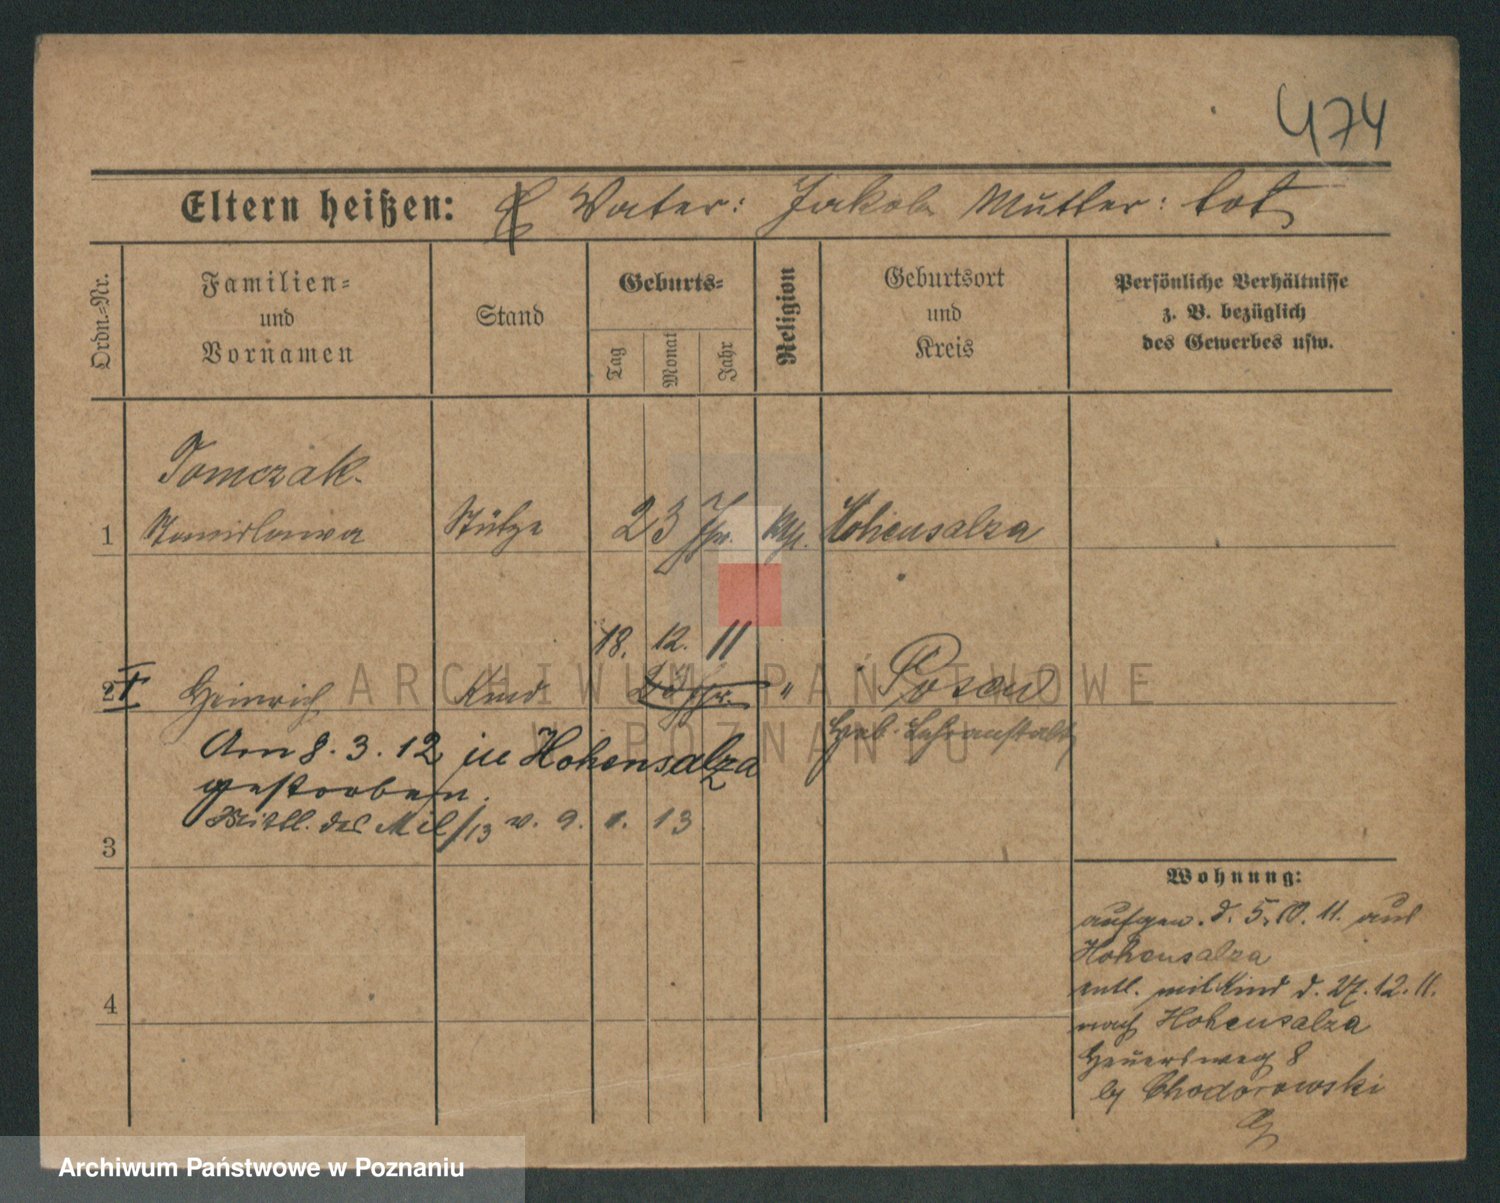 474
Eltern heißen: Vater: Jakob Mutter: tot
Ordn.-Nr.
Familien-
und
Vornamen
Stand
Geburts-
Tag
Monat
Jahr
Religion
Geburtsort
und
Kreis
Persönliche Verhältnisse
z. B. bezüglich
des Gewerbes usw.
Tomczak
1 Stanislawa Stütze 23 Jhr. kth. Hohensalza
18. 12. 11
2 † Heinrich Kind 23 Jhr. " Posen
Heb. Lehranstalt
Am 8. 3. 12 in Hohensalza
gestorben.
Mittl. des Mil/13 v. 9. 1. 13
3
Wohnung:
aufgen. d. 5. 10. 11. aus
Hohensalza
entl. mit Kind d. 27. 12. 11.
nach Hohensalza
8
by Chodorowski
4
ARCHIWUM PAŃSTWOWE
W POZNANIU
Archiwum Państwowe w Poznaniu